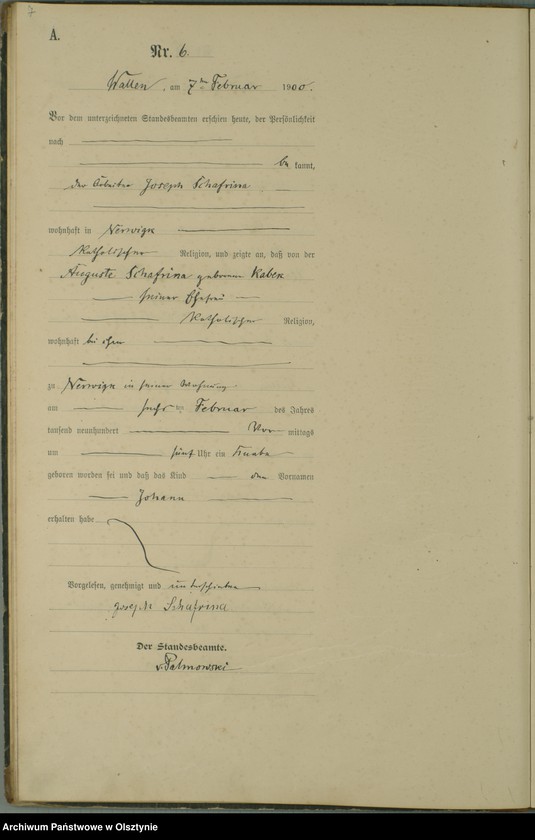 7
A.
Nr. 6.
Wallen, am 7ten Februar 1900.
Vor dem unterzeichneten Standesbeamten erschien heute, der Persönlichkeit
nach
be kannt,
der Arbeiter Joseph Schafrina
wohnhaft in Nerwigk
katholischer Religion, und zeigte an, daß von der
Auguste Schafrina geborenen
seiner Ehefrau
katholischer Religion,
wohnhaft bei ihm
zu Nerwigk in seiner Wohnung
am sechsten Februar des Jahres
tausend neunhundert Vor mittags
um fünf Uhr ein Knabe
geboren worden sei und daß das Kind den Vornamen
Johann
erhalten habe
Vorgelesen, genehmigt und unterschrieben
Joseph Schafrina
Der Standesbeamte.
v. Palmowski
Archiwum Państwowe w Olsztynie